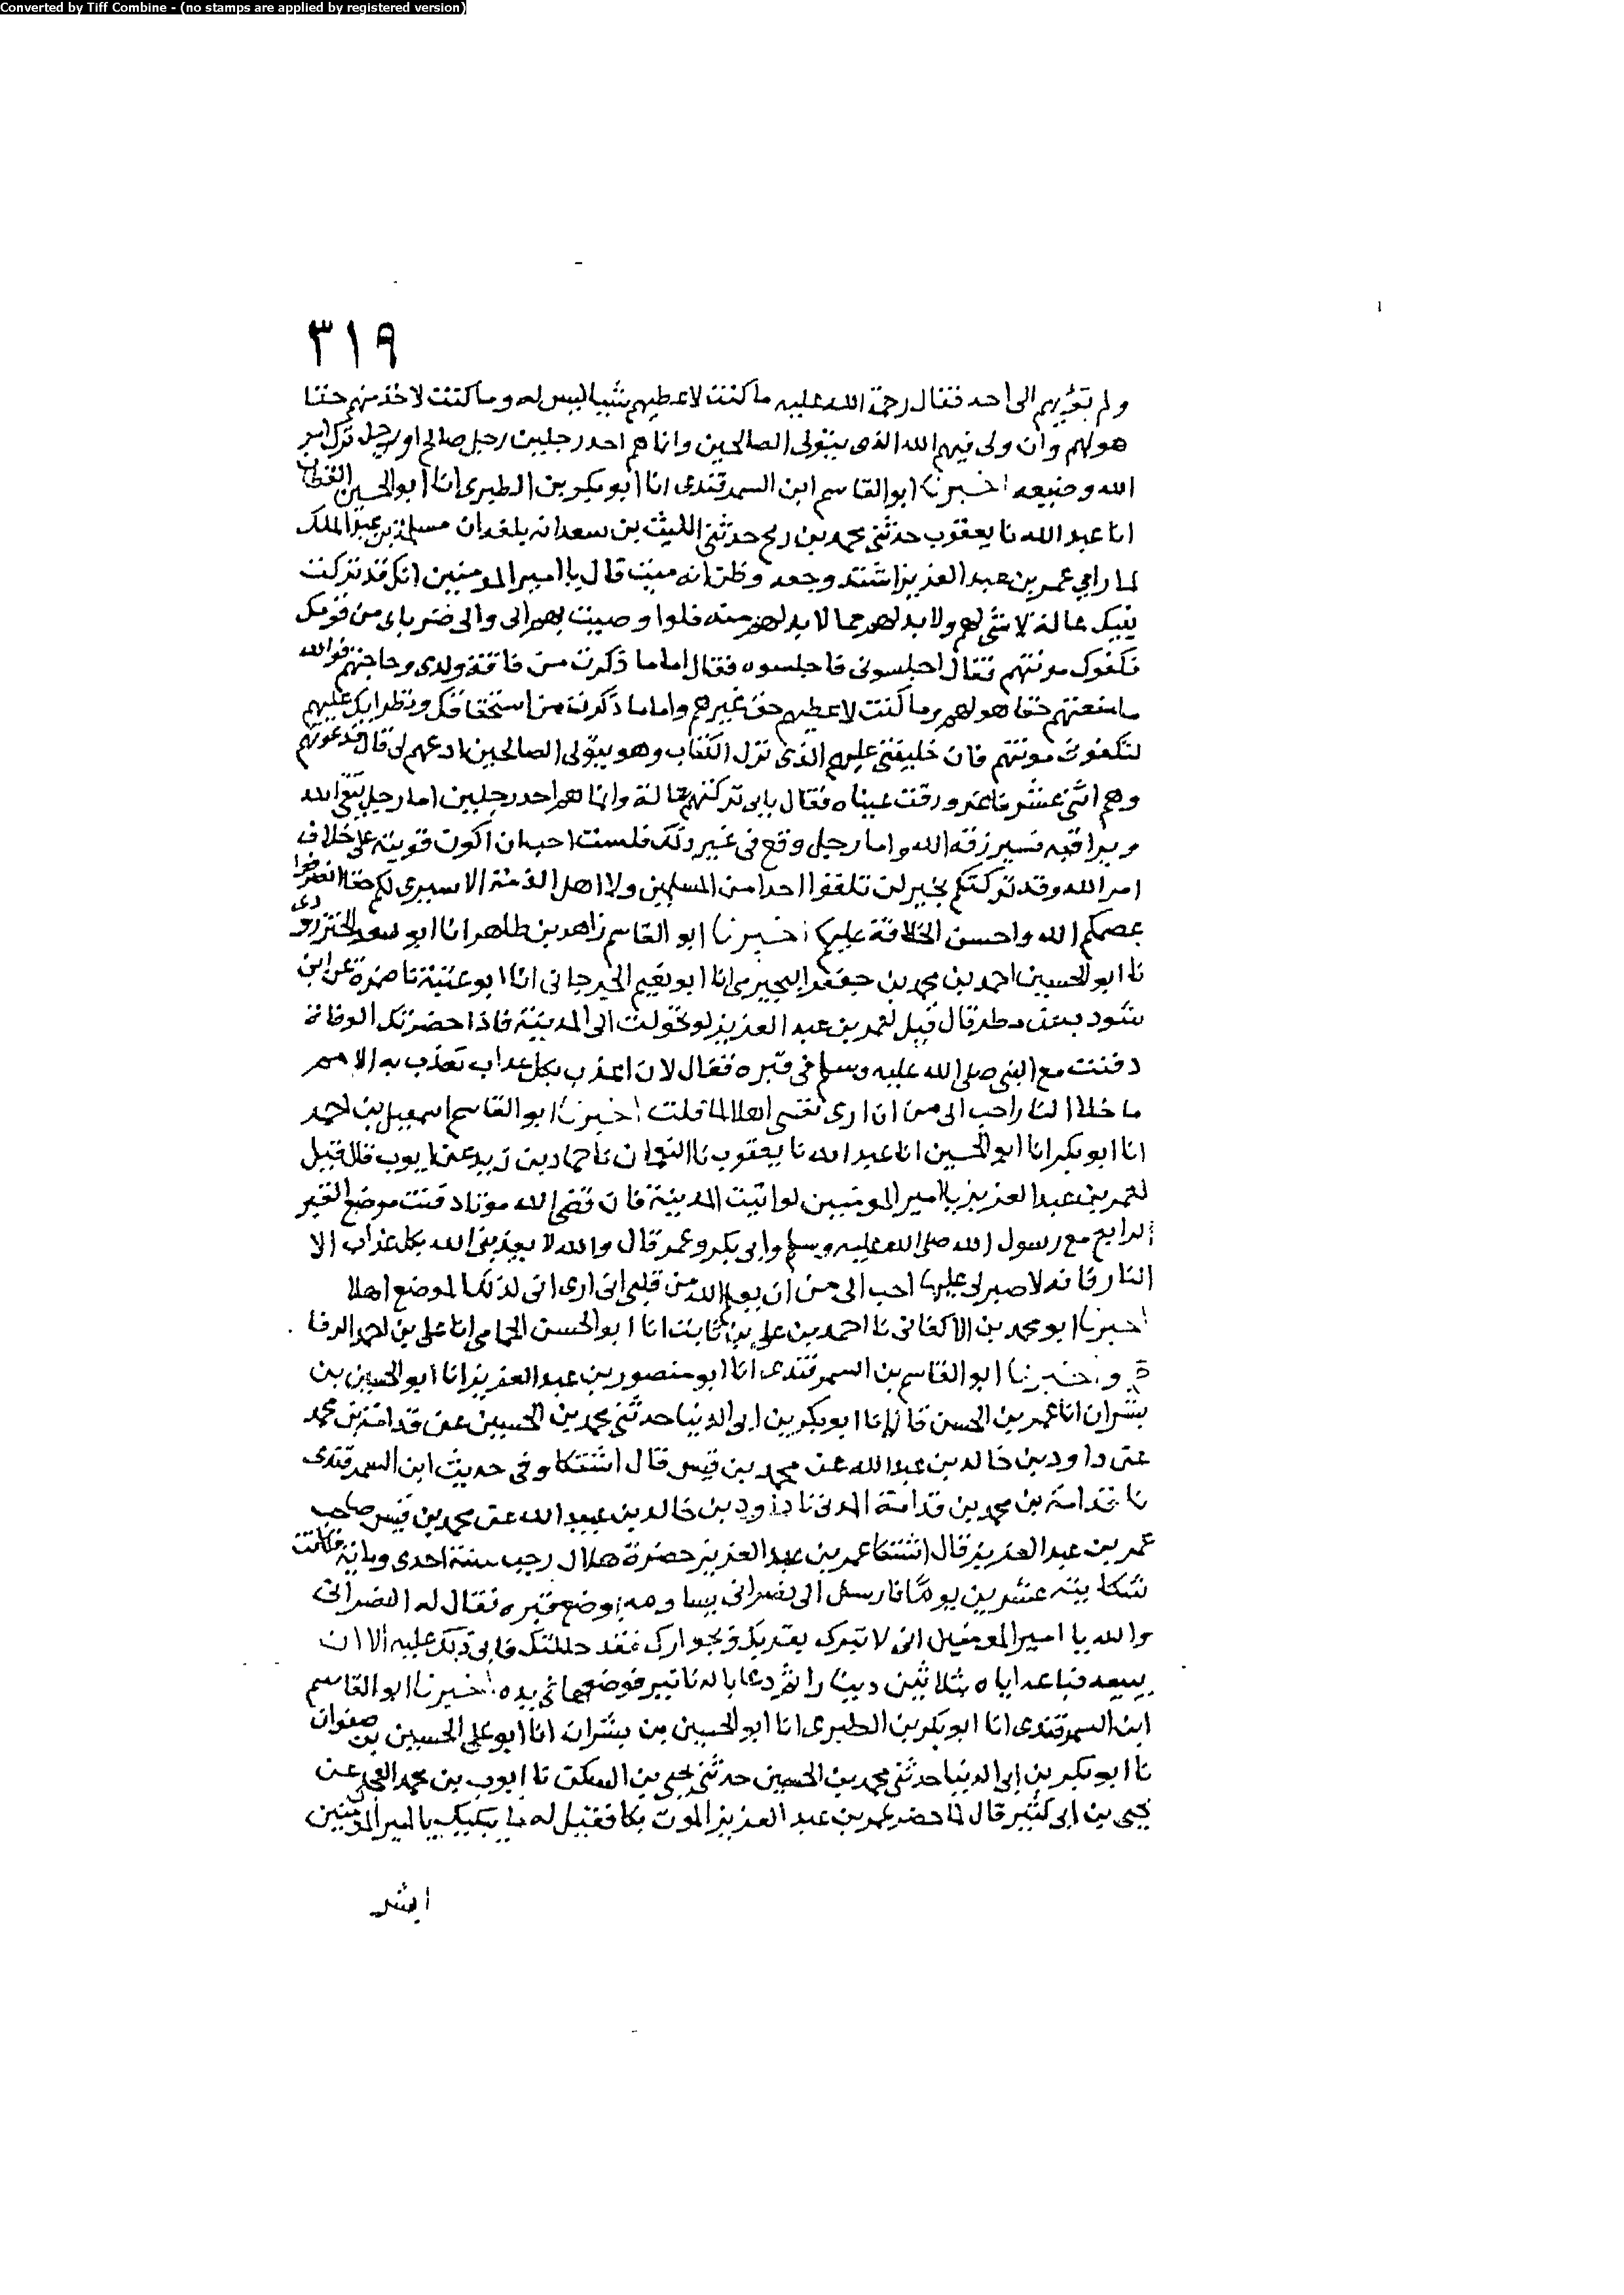 Converted by Tiff Combine - (no stamps are applied by registered version)
٣١٩
ولم تؤيهم الى احد فقال رحمة الله عليه ما كنت لاعطيهم شيا ليس له وما كنت لاخذ منهم حقا
هو لهم وان ولى فيهم الله الذى يتولى الصالحين وانا هم احد رجلين رجل صالح او رجل ترك امر
الله وضيعه اخبرنا ابو القاسم ابن السمرقندى انا ابو بكر بن الطبرى انا ابو الحسين القطان
انا عبد الله نا يعقوب حدثنى محمد بن رمح حدثنى الليث بن سعد انه بلغه ان مسلمة بن عبد الملك
لما راى عمر بن عبد العزيز اشتد وجعه وظن انه ميت قال يا امير المومنين انك قد تركت
بنيك عالة لا شى لهم ولا بد لهم مما لا بد لهم منه فلوا وصيت بهم الى والى ضربا ى من قومك
فكفوك مونتهم فقال اجلسونى فاجلسوه فقال اما ما ذكرت من فاقة ولدى وحاجتهم فوالله
ما منعتهم حقا هو لهم وما كنت لاعطيهم حق غيرهم واما ما ذكرت من استخلافك ونظرايك عليهم
لتكفونى مونتهم فان خليفتى عليهم الذى نزل الكتاب وهو يتولى الصالحين ادعهم لى قال فدعوتهم
وهم اثنى عشر فاغرورقت عيناه فقال بابى تركتهم عالة وانما هم احد رجلين اما رجل يتقى الله
ويراقبه فسيرزقه الله واما رجل وقع فى غير ذلك فلست احب ان اكون قويته على خلاف
امر الله وقد تركتكم بخير لن تلقوا احدا من المسلمين ولا اهل الذمة الا سيرى لكم حقا انصرفوا
عصمكم الله واحسن الخلافة عليكم اخبرنا ابو القاسم زاهر بن طاهر انا ابو سعد الخنزرو
دى
نا ابو الحسين احمد بن محمد بن جعفر البحيرى انا ابو نعيم الجرجانى انا ابو عتبة نا ضمرة عن ابن
شودب عن مطر قال قيل لعمر بن عبد العزيز لو تحولت الى المدينة فاذا حضرتك الوفاة
دفنت مع النبى صلى الله عليه وسلم فى قبره فقال لان اعذب بكل عذاب تعذب به الامم
ما خلا النار احب الى من ان ارى نفسى اهلا لما قلت اخبرنا ابو القاسم اسمعيل بن احمد
انا ابو بكر انا ابو الحسين انا عبد الله نا يعقوب نا النعمان نا حماد بن زيد عن ايوب قال قيل
لعمر بن عبد العزيز يا امير المومنين لو اتيت المدينة فان قضى الله موتا دفنت موضع القبر
الرابع مع رسول الله صلى الله عليه وسلم وابى بكر وعمر قال والله لا يعذبنى الله بكل عذاب الا
النار فانه لا صبر لى عليها احب الى من ان يعلم الله من قلبى انى ارى انى لذلك الموضع اهلا
اخبرنا ابو محمد بن الاكفانى نا احمد بن على بن ثابت انا ابو الحسن الحمامى انا على بن احمد الرفا
ح واخبرنا ابو القاسم بن السمرقندى انا ابو منصور بن عبد العزيز انا ابو الحسين بن
بشران انا عمر بن الحسن قالا انا ابو بكر بن ابى الدنيا حدثنى محمد بن الحسين عن قدامة بن محمد
عن داود بن خالد بن عبد الله عن محمد بن قيس قال اشتكا وفى حديث ابن السمرقندى
نا قدامة بن محمد بن قدامة المدنى نا داوود بن خالد بن عبيد الله عن محمد بن قيس صاحب
عمر بن عبد العزيز قال اشتكا عمر بن عبد العزيز حضرة هلال رجب سنة احدى ومائة فكانت
شكايته عشرين يوما فارسل الى نصرانى يساومه بوضع قبره فقال له النصرانى
والله يا امير المومنين انى لاتبرك بقربك وبجوارك فقد حللتك فابى ذلك عليه الا ان
يبيعه فباعه اياه بثلاثين دينارا ثم دعا بالدنانير فوضعها فى يده اخبرنا ابو القاسم
ابن السمرقندى انا ابو بكر بن الطبرى انا ابو الحسين بن بشران انا ابو على الحسين بن صفوان
نا ابو بكر بن ابى الدنيا حدثنى محمد بن الحسين حدثنى يحيى بن السكن نا ايوب بن محمد العجلى عن
يحيى بن ابى كثير قال لما حضر عمر بن عبد العزيز الموت بكا فقيل له ما يبكيك يا امير المومنين
ابشر